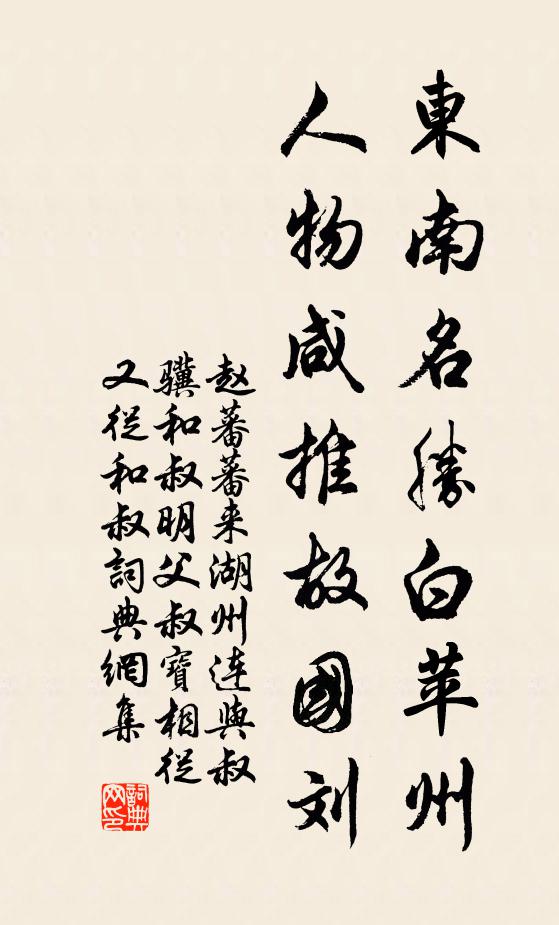 東南名勝白苹州
人物咸推故國刘
赵蕃蕃来湖州连與叔
骥和叔明父叔寶相從
又從和叔詞典網集
詞典网印